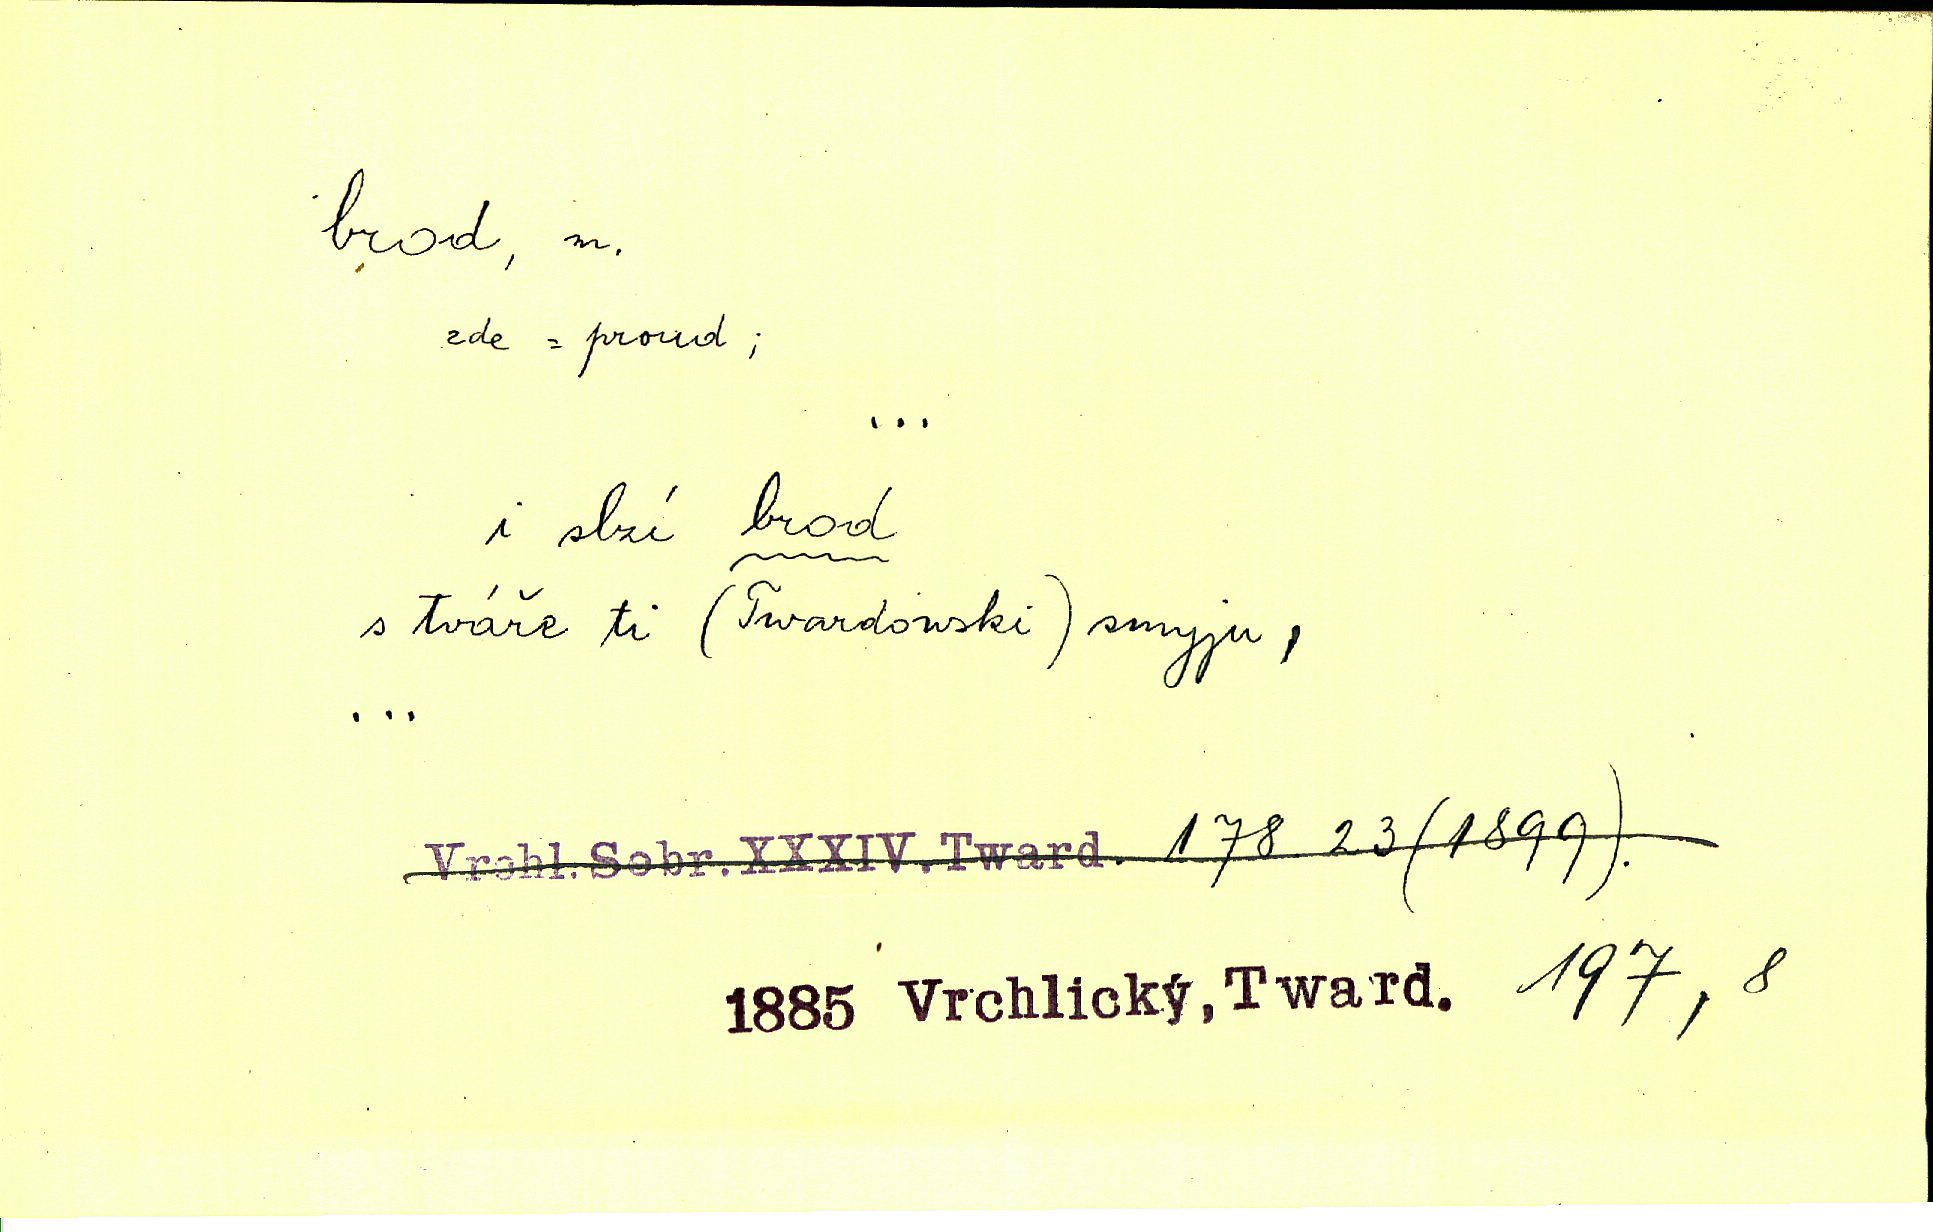 brod, m.
zde = proud;
...
i slzí brod
s tváře ti (Twardowski) smyju,
...
Vrchl. Sobr. XXXIV. Tward. 178 23 (1899).
1885 Vrchlický, Tward. 197, 8